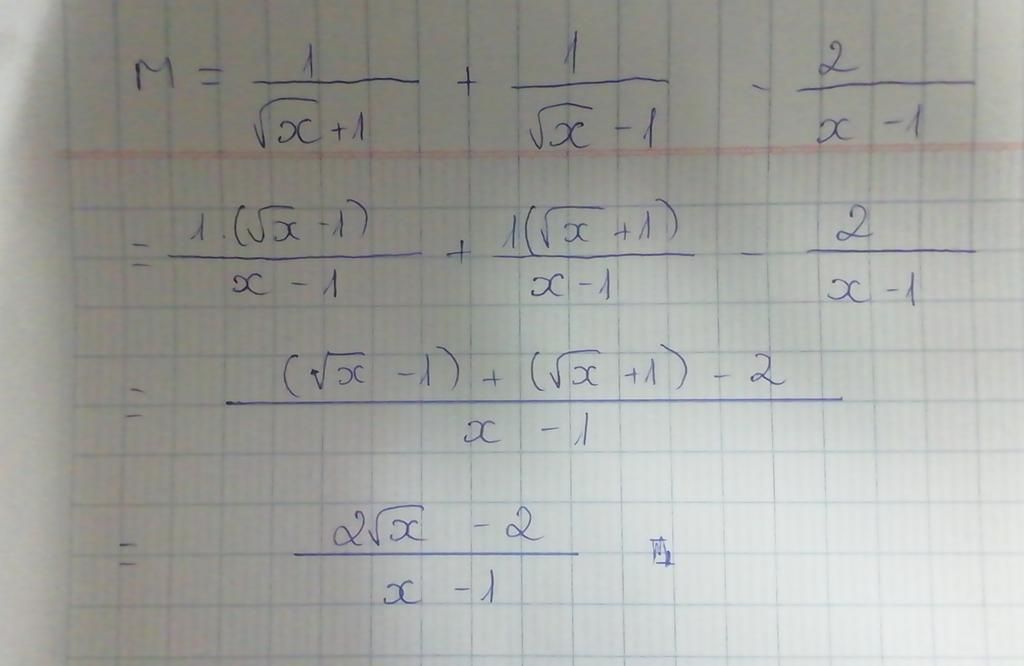 M = 1/(√x + 1) + 1/(√x - 1) - 2/(x - 1)
= 1.(√x - 1)/(x - 1) + 1(√x + 1)/(x - 1) - 2/(x - 1)
= ((√x - 1) + (√x + 1) - 2)/(x - 1)
= (2√x - 2)/(x - 1)